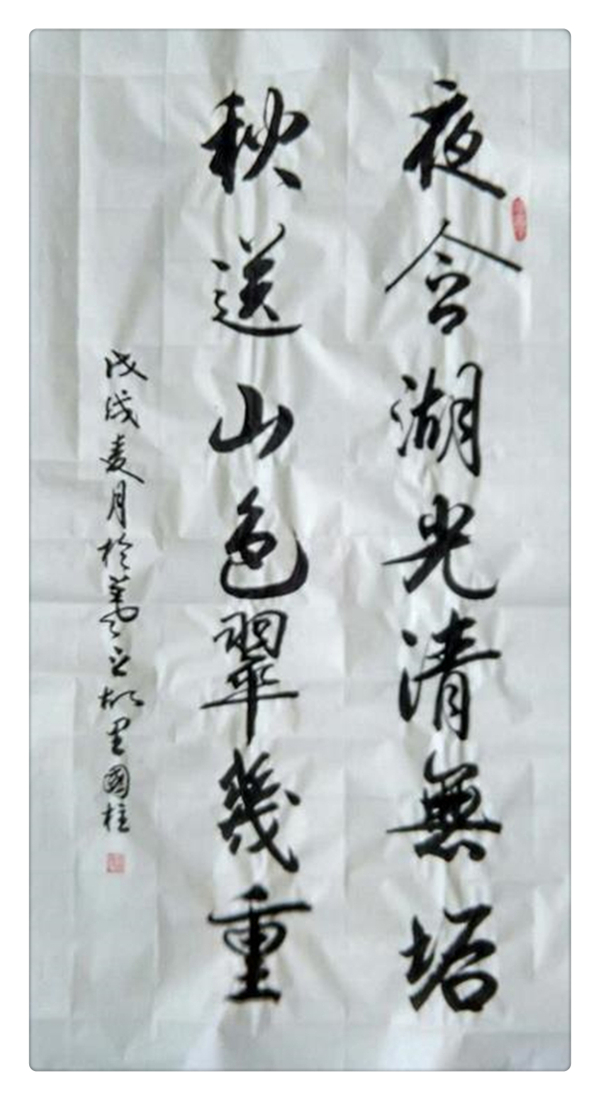 夜含湖光清無垢
秋送山色翠幾重
戊戌麦月於萬之樹里國柱